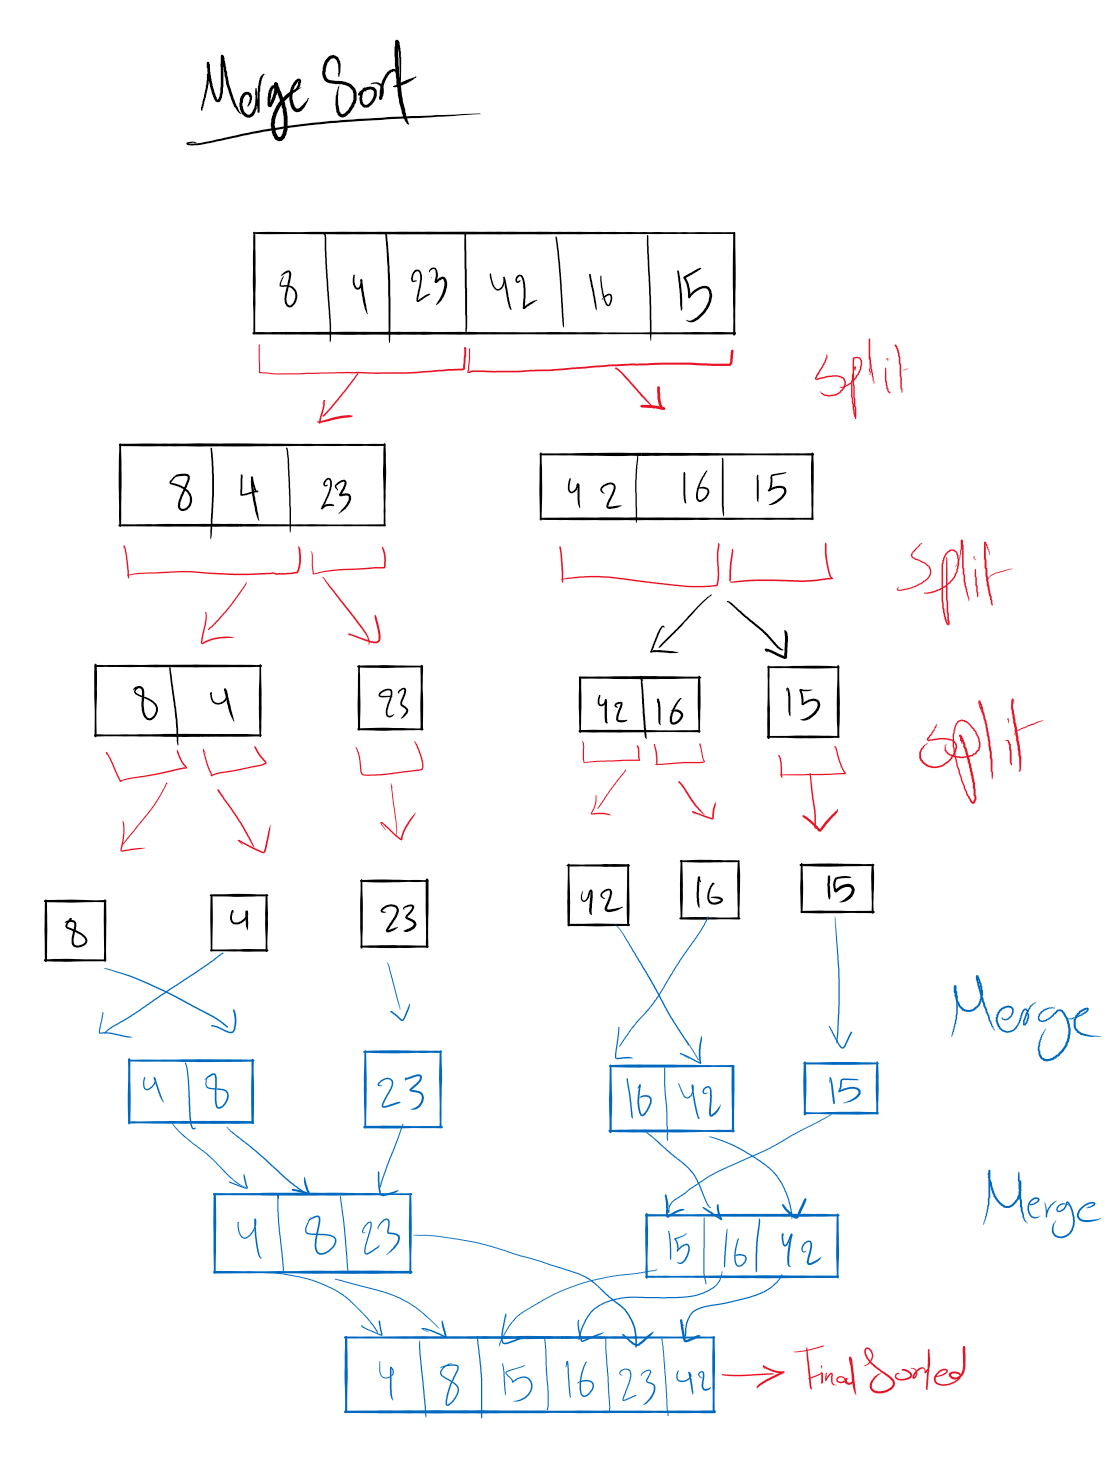 Merge Sort
8 4 23 42 16 15
Split
8 4 23
42 16 15
Split
8 4
23
42 16
15
Split
8
4
23
42
16
15
Merge
4 8
23
16 42
15
Merge
4 8 23
15 16 42
4 8 15 16 23 42
Final Sorted